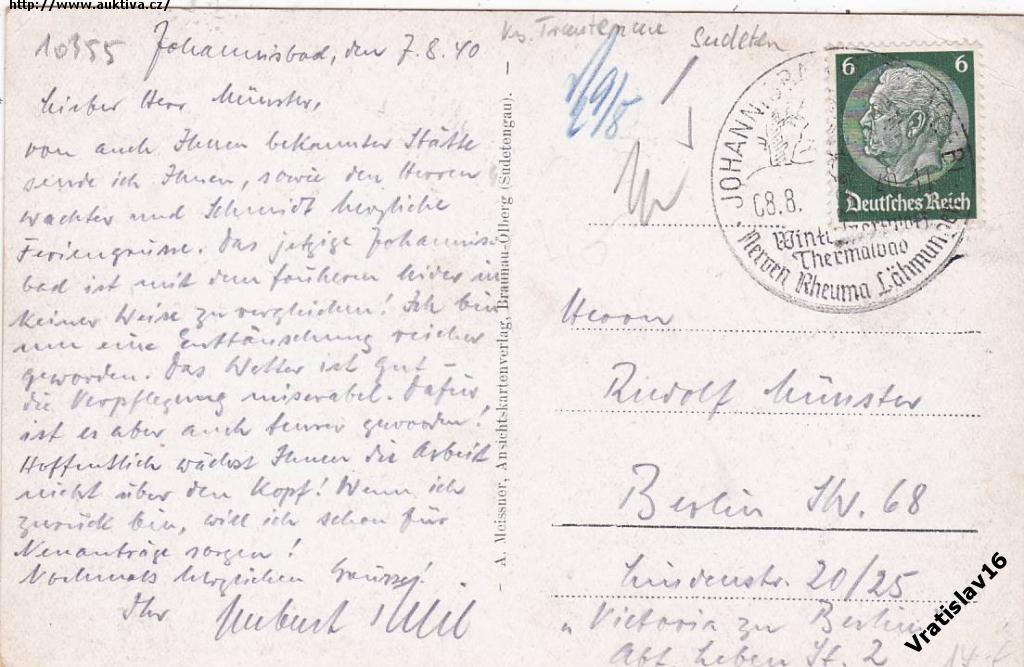 http://www.auktiva.cz/
10355
Johannisbad, den 7.8.40
Lieber Herr Münster,
von auch Ihnen bekannter Stätte
sende ich Ihnen, sowie den Herren
Wachter und Schmidt herzliche
Feriengrüsse. Das jetzige Johannis-
bad ist mit dem früheren leider in
keiner Weise zu vergleichen! Ich bin
um eine Enttäuschung reicher
geworden. Das Wetter ist gut –
die Verpflegung miserabel. Dafür
ist es aber auch teurer geworden!
Hoffentlich wächst Ihnen die Arbeit
nicht über den Kopf! Wenn ich
zurück bin, will ich schon für
Neuanträge sorgen!
Nochmals herzlichen Grüsse!
Ihr Herbert
- A. Meissner, Ansichtskartenverlag, Braunau-Ölberg (Sudetengau). -
Sudeten
6 6
Deutsches Reich
JOHANNISBAD
08.8.
Thermalbad
Nerven Rheuma Lähmungen
Herrn
Rudolf Münster
Berlin SW. 68
Lindenstr. 20/25
„Victoria zu Berlin"
Abt. Leben St. 2
Vratislav16